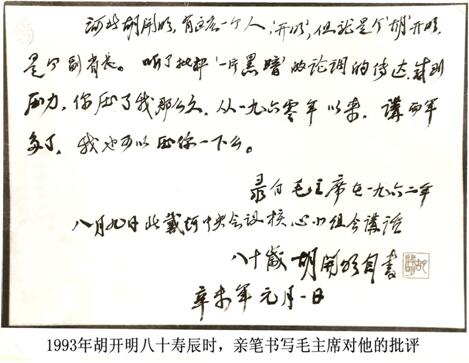 河北胡開明,有这么一个人,“开明”,但就是个“胡”开明,
是个副省长。听了批评“一片黑暗”的论调的传达,感到
压力,你压了我那么久,从一九六零年以来,講两年
多了,我也可以压你一下么。
录自毛主席在一九六二年
八月九日北戴河中央会议核心小组会講话
八十歲 胡開明自書
辛未年元月一日
1993年胡开明八十寿辰时，亲笔书写毛主席对他的批评